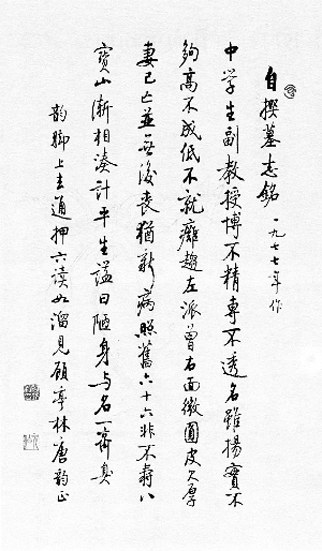 自撰墓志銘 一九七七年作
中学生副教授博不精専不透名雖揚實不
夠高不成低不就癱趨左派曾右面微圓皮欠厚
妻已亡並無後喪猶新病照舊六十六非不壽八
寳山漸相湊計平生謚曰陋身与名一齊臭
韵脚上去通押六讀如溜見顧亭林唐韵正